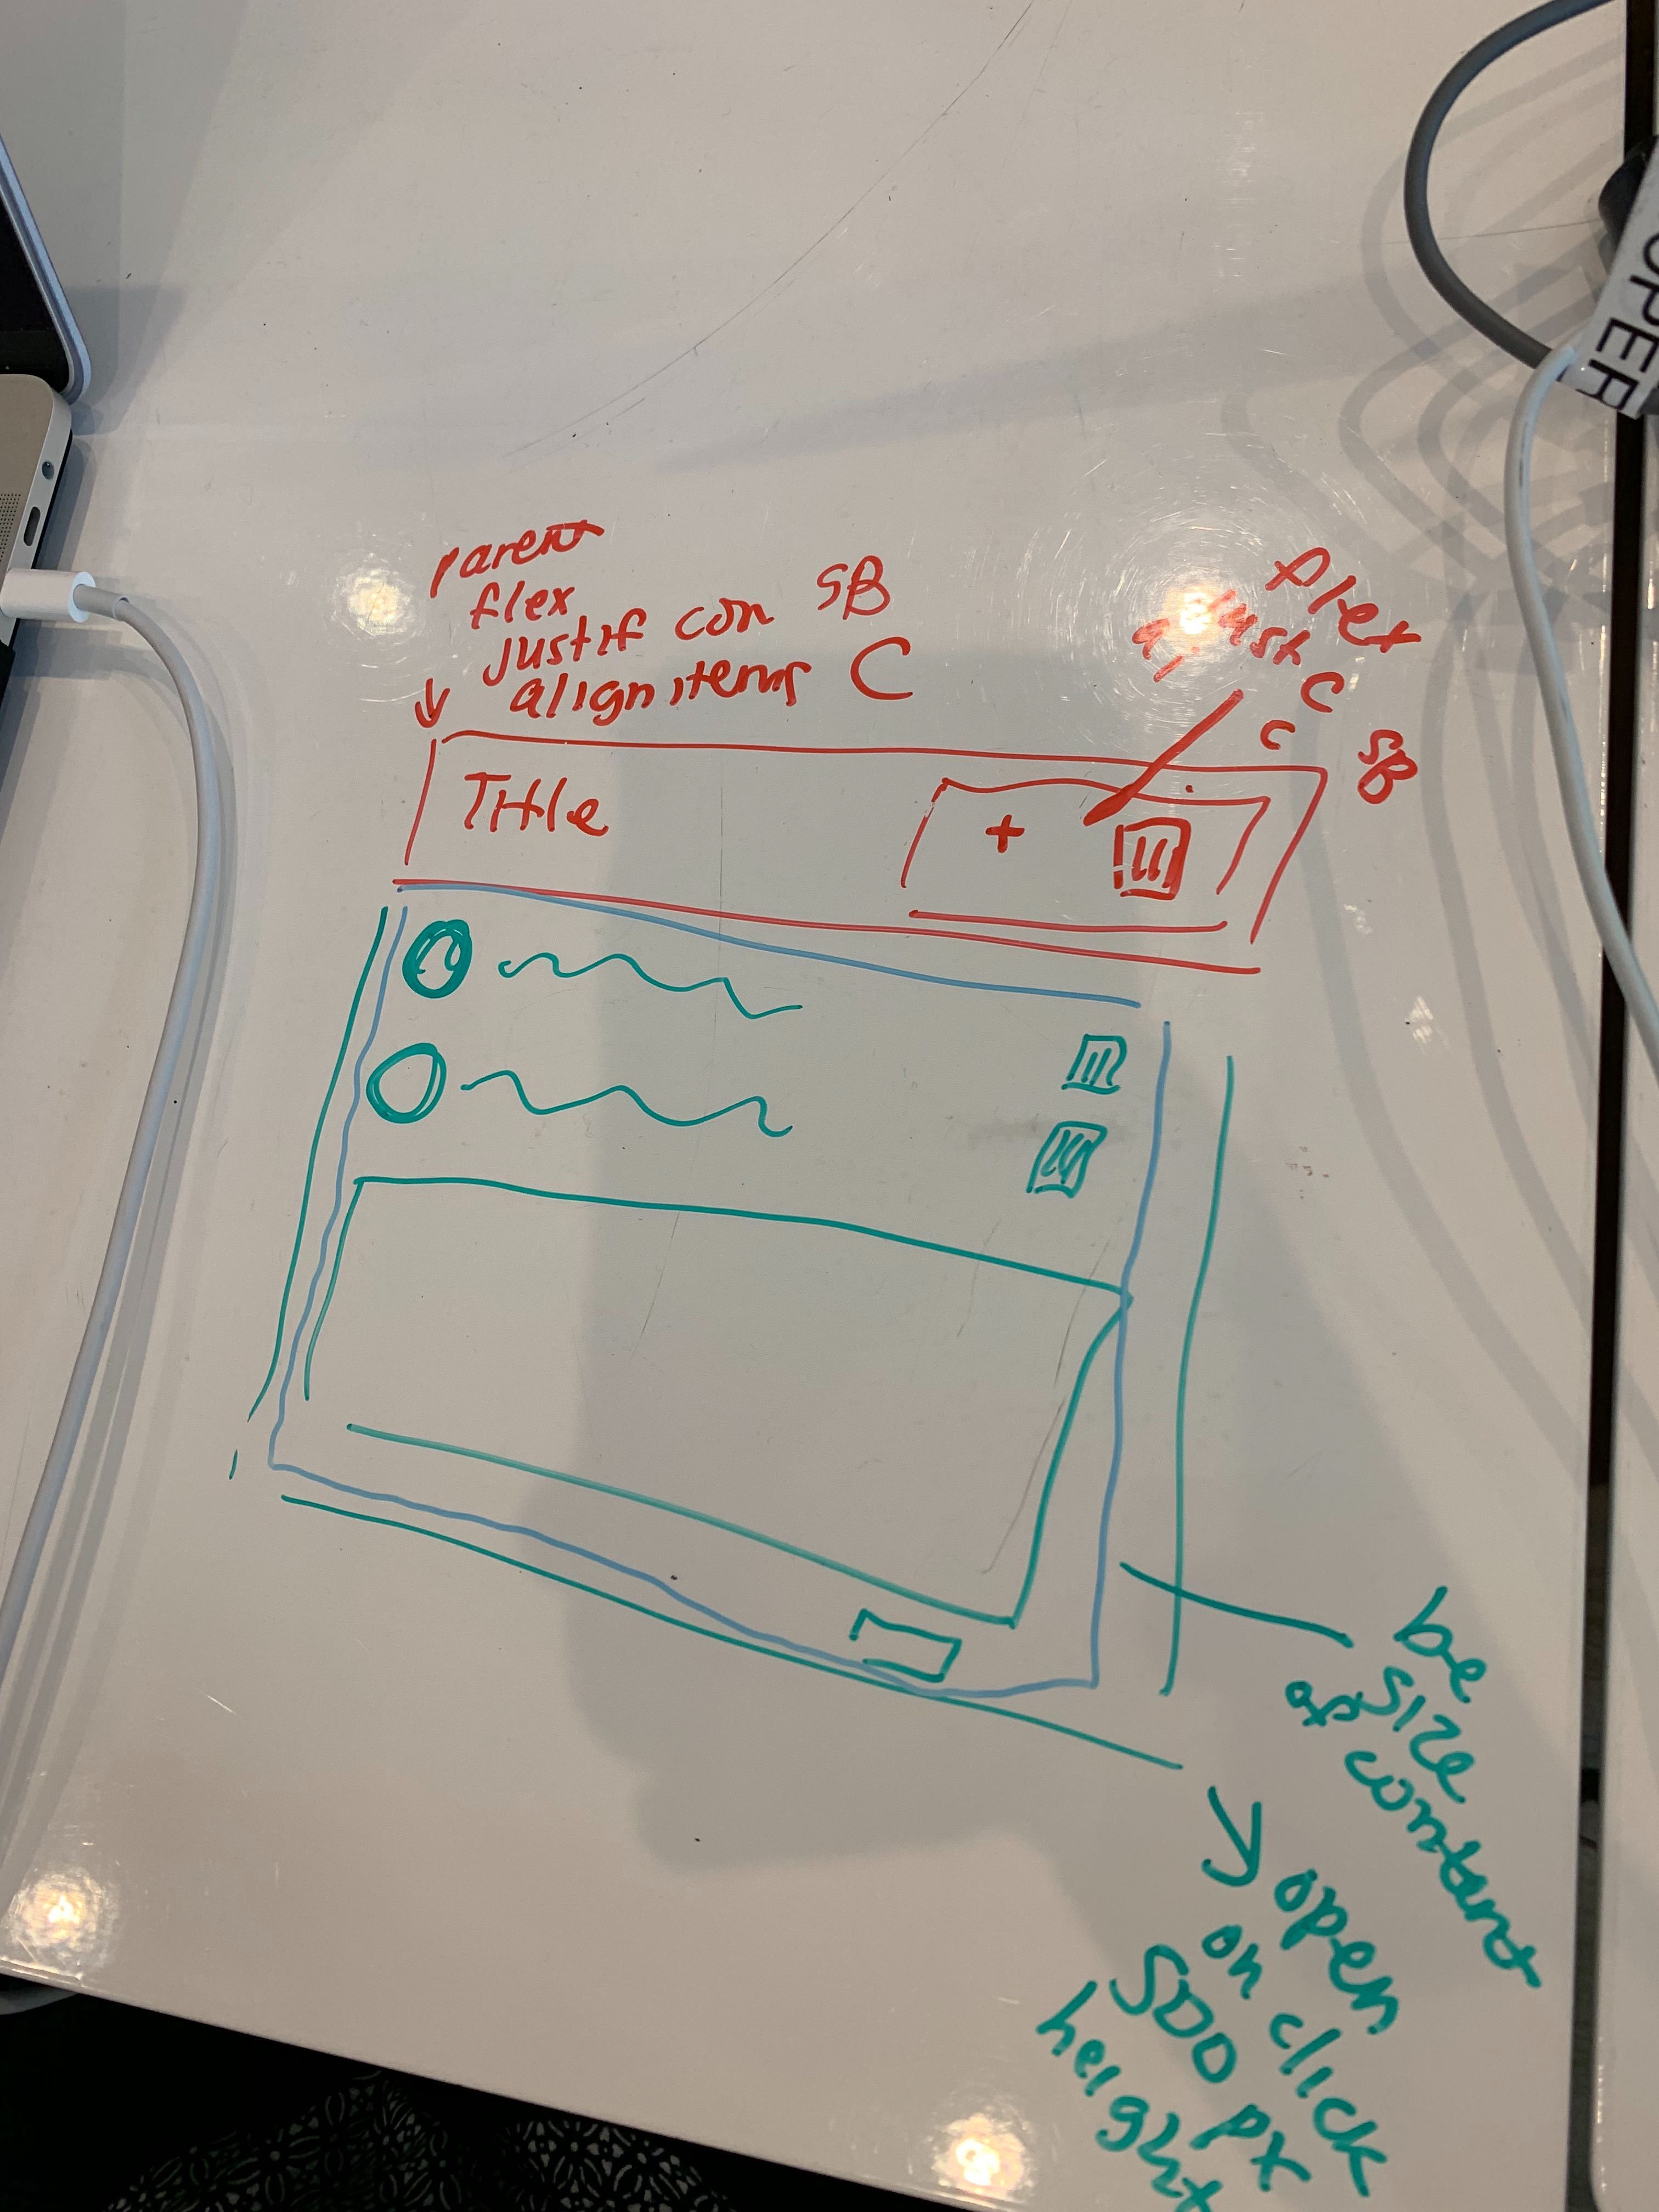 OPER
parent
flex
justif con SB
align items C
flex
just C SB
a, c
Title
+
be
size
of content
open
on click
500 px
height